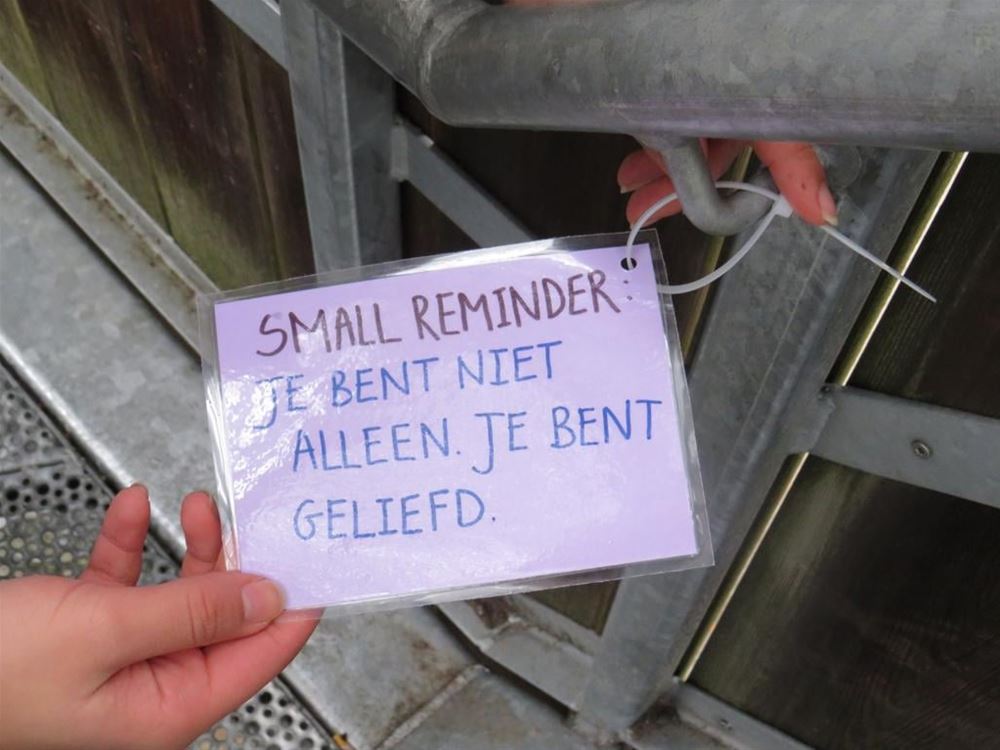 SMALL REMINDER:
JE BENT NIET
ALLEEN. JE BENT
GELIEFD.